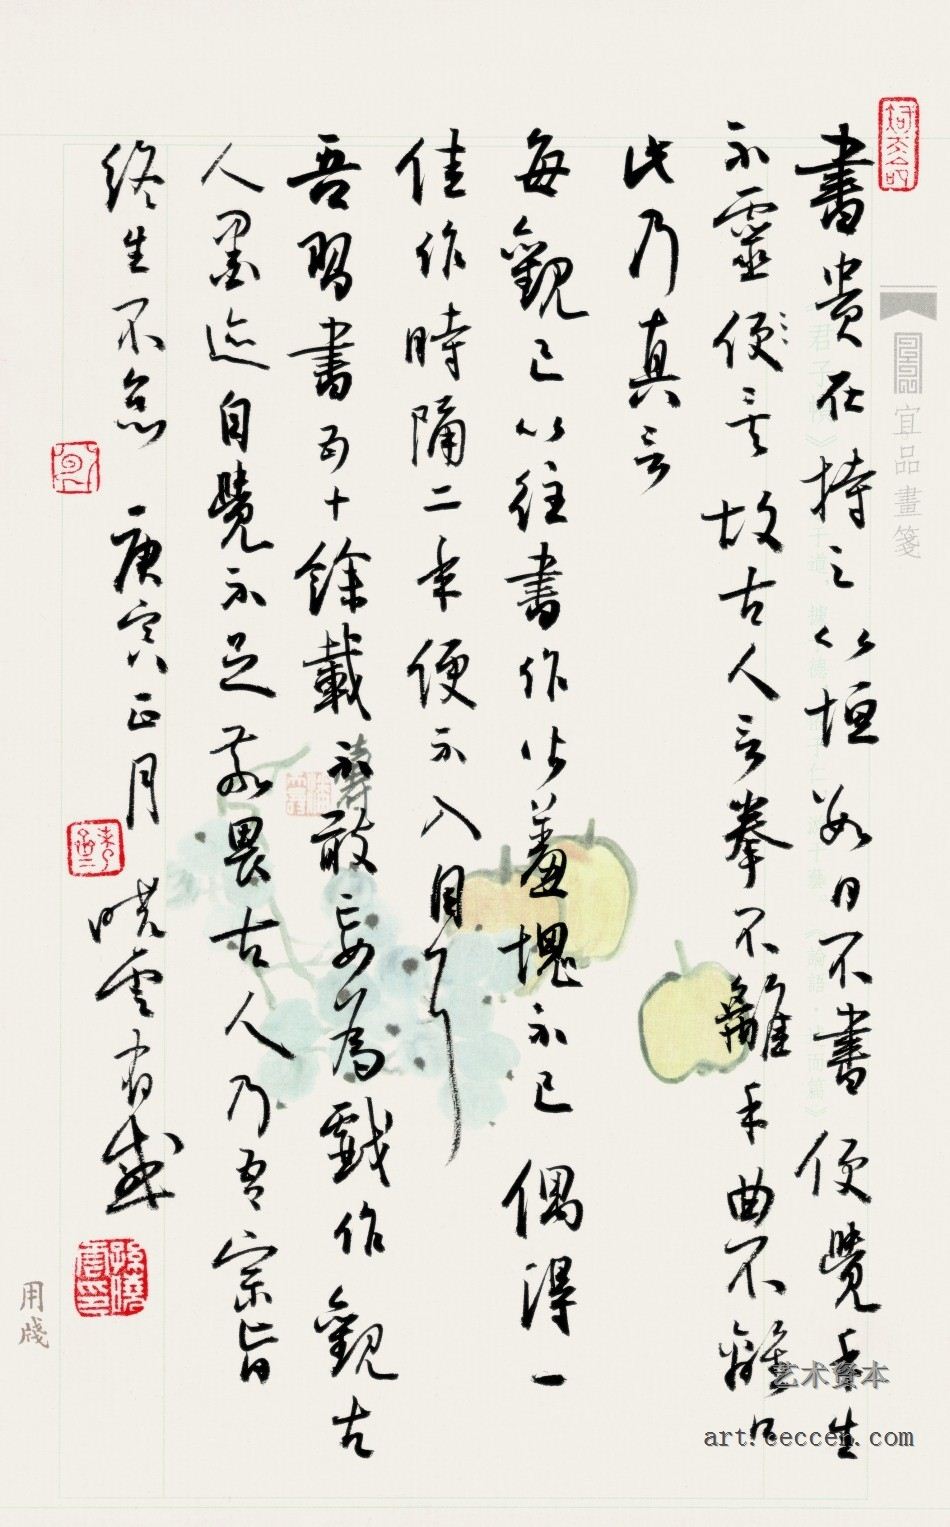 書貴在持之以恒如日不書便覺手生
不靈便矣故古人云拳不離手曲不離口
此乃真言
每觀已以往書作皆羞愧不已偶得一
佳作時隔二年便不入目了
吾習書五十餘載不敢妄為戲作觀古
人墨迹自覺不足敬畏古人乃吾宗旨
終生不怠 庚寅正月 曉雲

宜品畫箋
用牋
艺术資本
art.ceccen.com